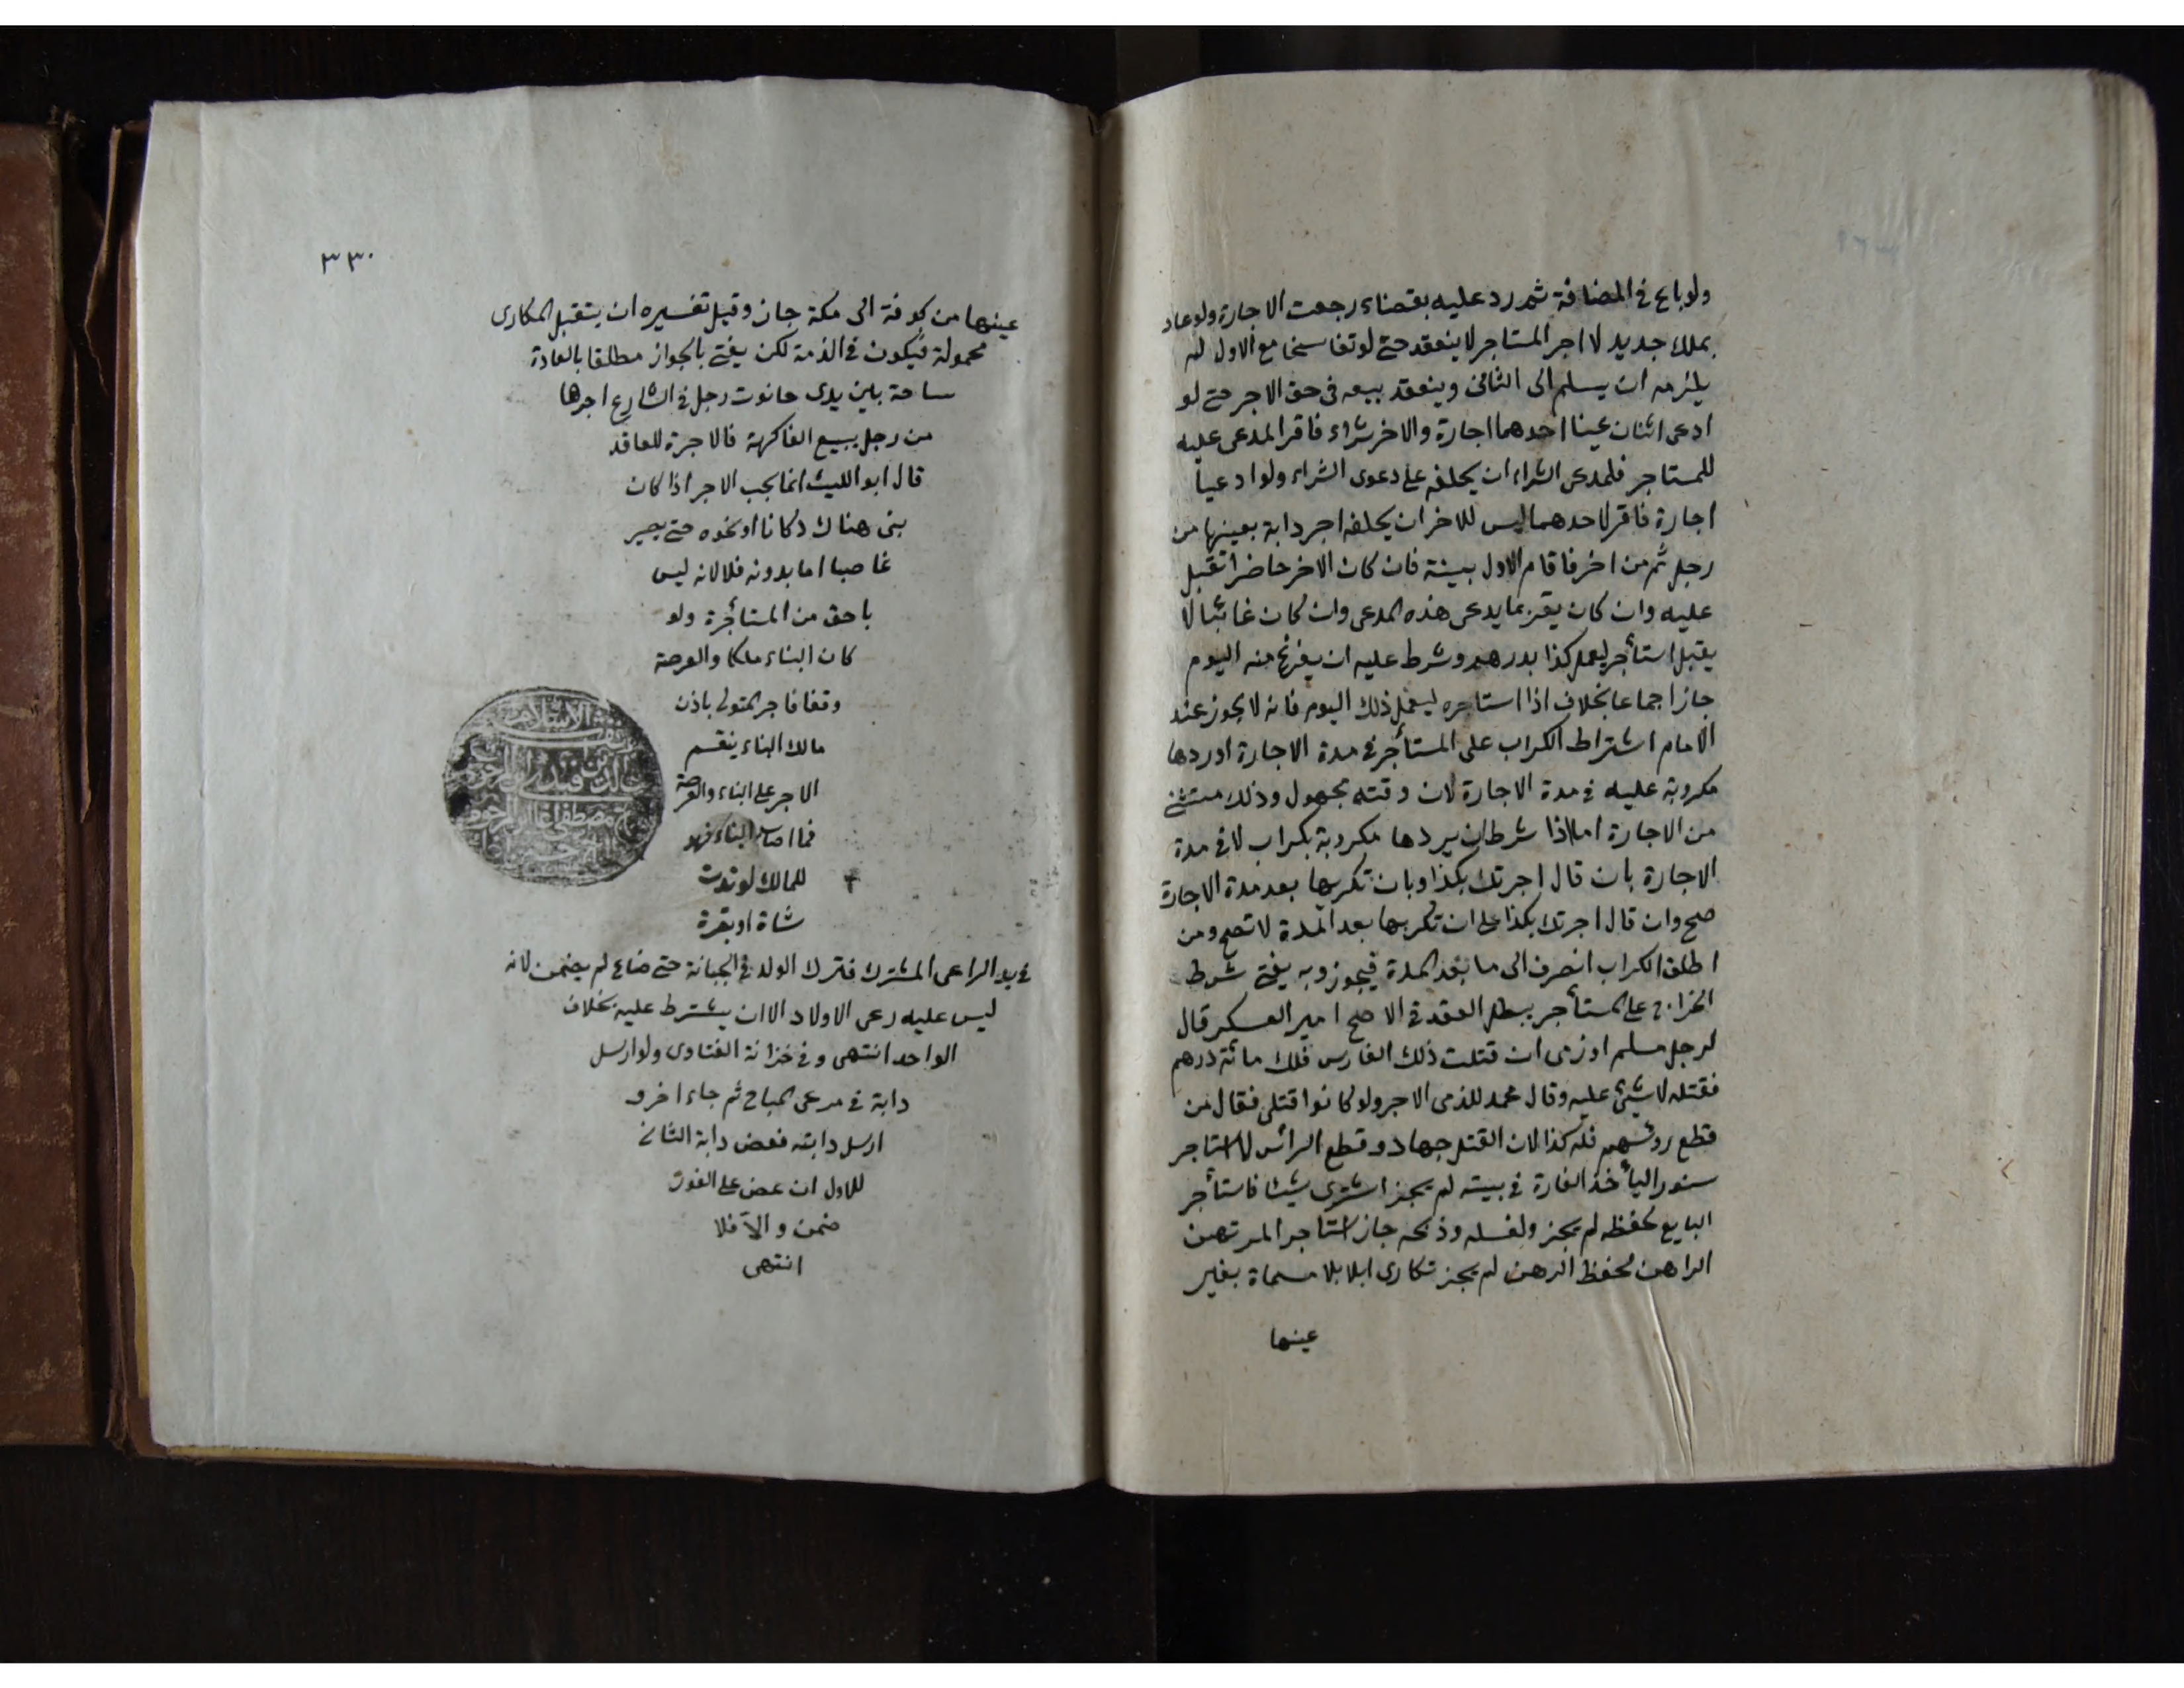 ولو باع في المضافة ثم رد عليه بقضاء رجعت الاجارة ولو عاد
بملك جديد لا اجر المستاجر لا ينعقد حتى لو تفاسخا مع الاول لم
يلزمه ان يسلم الى الثاني وينعقد بيعه في حق الاجر حتى لو
ادعى اثنان عينا احدهما اجارة والاخر شراء فاقر المدعى عليه
للمستاجر فلمدعى الشراء ان يحلفه على دعوى الشراء ولو ادعيا
اجارة فاقر لاحدهما ليس للاخر ان يحلفه اجر دابة بعينها من
رجل ثم من اخر فاقام الاول بينة فان كان الاخر حاضرا تقبل
عليه وان كان يقر بما يدعى هذه المدعى وان كان غائبا لا
يقبل استأجر ليعمل كذا بدرهم وشرط عليه ان يفرغ منه اليوم
جاز اجماعا بخلاف اذا استاجره ليعمل ذلك اليوم فانه لا يجوز عند
الامام اشتراط الكراب على المستأجر في مدة الاجارة او ردها
مكروبة عليه في مدة الاجارة لان وقته مجهول وذلك مستثنى
من الاجارة اما اذا شرط ان يردها مكروبة بكراب لا في مدة
الاجارة بان قال اجرتك بكذا وبان تكربها بعد مدة الاجارة
صح وان قال اجرتك بكذا على ان تكربها بعد المدة لا تصح ومن
اطلق الكراب انصرف الى ما بعد المدة فيجوز وبه يفتى شرط
الخراج على المستأجر يبطل العقد في الاصح امير العسكر قال
لرجل مسلم او ذمى ان قتلت ذلك الفارس فلك مائة درهم
فقتله لا شئ عليه وقال محمد للذمى الاجر ولو كانوا قتلى فقال من
قطع روئسهم فله كذا لان القتل جهاد وقطع الرأس لا استاجر
سنورا ليأخذ الفارة في بيته لم يجز اشترى شيئا فاستأجر
البايع لحفظه لم يجز ولغسله وذبحه جاز استاجر المرتهن
الراهن لحفظ الرهن لم يجز تكارى ابلا بلا مسماة بغير
عينها
٣٣٠
عينها من كوفة الى مكة جاز وقيل تفسيره ان يتقبل المكارى
محمولة فيكون في الذمة لكن يفتى بالجواز مطلقا بالعادة
ساحة بين يدى حانوت رجل في الشارع اجرها
من رجل يبيع الفاكهة فالاجرة للعاقد
قال ابو الليث انما يجب الاجر اذا كان
بنى هناك دكانا او نحوه حتى يصير
غاصبا اما بدونه فلا لانه ليس
باحق من المستأجرة ولو
كان البناء ملكا والعرصة
وقفا فاجر المتولى باذن
مالك البناء ينقسم
الاجر على البناء والعرصة
فما اصاب البناء فهو
للمالك لو ندت
شاة او بقرة
في يد الراعى المشترك فترك الولد في الجبانة حتى ضاع لم يضمن لانه
ليس عليه رعى الاولاد الا ان يشترط عليه بخلاف
الواحد انتهى وفى خزانة الفتاوى ولو ارسل
دابة في مرعى المباح ثم جاء اخر و
ارسل دابته فعض دابة الثانى
للاول ان عض على الفور
ضمن والا فلا
انتهى